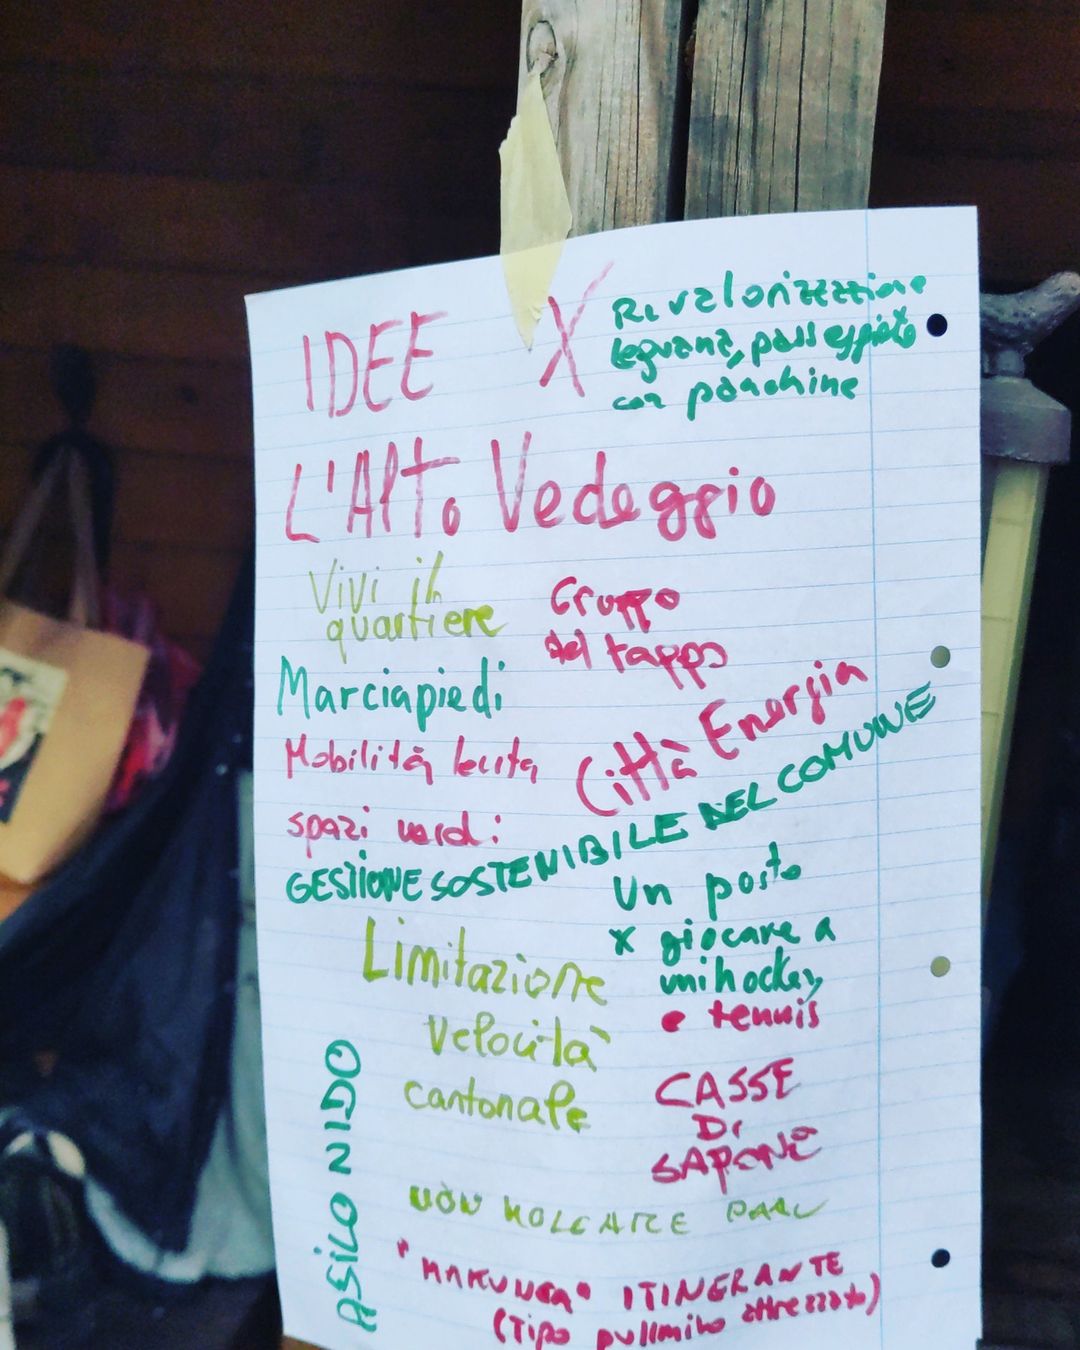 IDEE X
Rivalorizzazione
leguana, passeggiata
con panchine
L'Alto Vedeggio
Vivi il
quartiere
Gruppo
del tappo
Marciapiedi
Mobilità lenta
Città Energia
spazi verdi
GESTIONE SOSTENIBILE DEL COMUNE
Un posto
x giocare a
unihockey
e tennis
Limitazione
velocità
cantonale
CASSE
DI
SAPONE
ASILO NIDO
NON MOLLARE
ITINERANTE
(Tipo pullmino attrezzato)